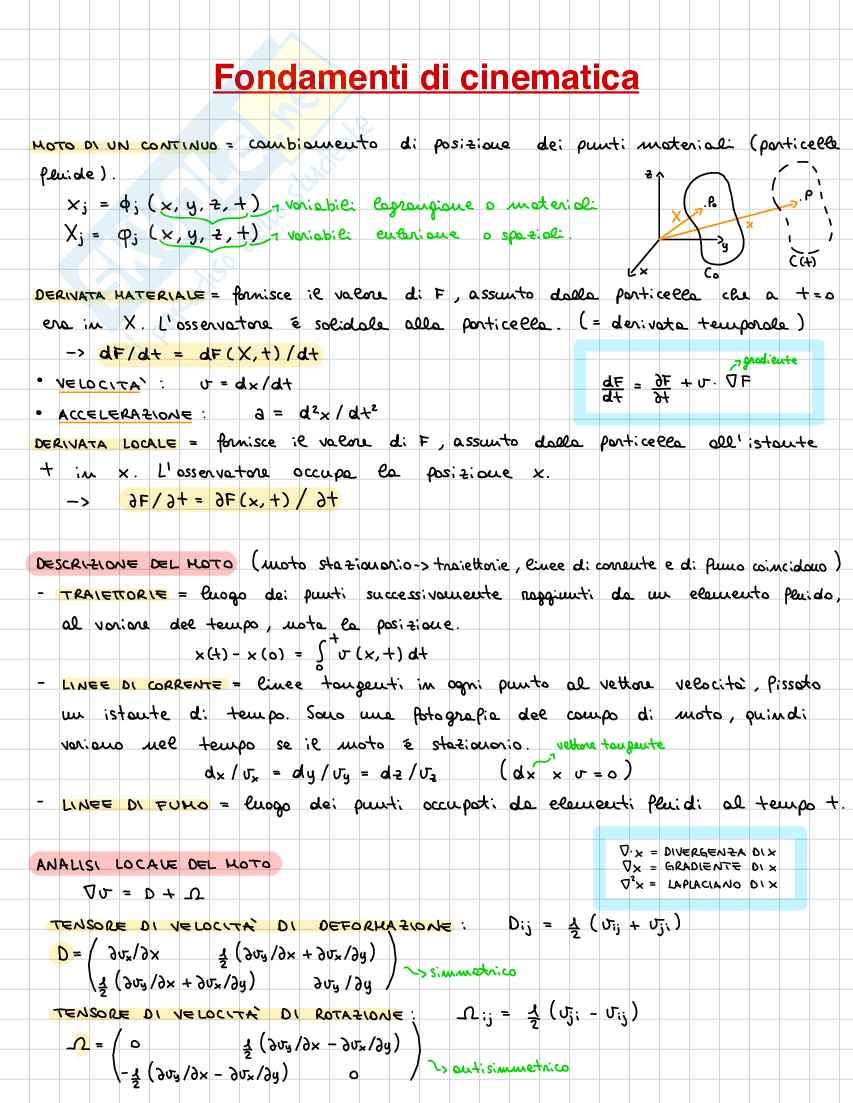 Fondamenti di cinematica
MOTO DI UN CONTINUO = cambiamento di posizione dei punti materiali (particelle
fluide).
xj = ϕj (x, y, z, t) → variabili lagrangiane o materiali
Xj = φj (x, y, z, t) → variabili euleriane o spaziali.
z
P₀
P
X
x
y
x
C₀
C(t)
DERIVATA MATERIALE = fornisce il valore di F, assunto dalla particella che a t=0
era in X. L'osservatore è solidale alla particella. (= derivata temporale)
-> dF/dt = dF(X,t)/dt
gradiente
• VELOCITA': v = dx/dt
dF/dt = ∂F/∂t + v · ∇F
• ACCELERAZIONE: a = d²x/dt²
DERIVATA LOCALE = fornisce il valore di F, assunto dalla particella all'istante
t in x. L'osservatore occupa la posizione x.
-> ∂F/∂t = ∂F(x,t)/∂t
DESCRIZIONE DEL MOTO (moto stazionario -> traiettorie, linee di corrente e di fumo coincidono)
- TRAIETTORIE = luogo dei punti successivamente raggiunti da un elemento fluido,
al variare del tempo, nota la posizione.
x(t) - x(0) = ∫₀ᵗ v(x,t) dt
- LINEE DI CORRENTE = linee tangenti in ogni punto al vettore velocità, fissato
un istante di tempo. Sono una fotografia del campo di moto, quindi
variano nel tempo se il moto è stazionario. vettore tangente
dx/vx = dy/vy = dz/vz (dx x v = 0)
- LINEE DI FUMO = luogo dei punti occupati da elementi fluidi al tempo t.
∇·x = DIVERGENZA DI x
∇x = GRADIENTE DI x
∇²x = LAPLACIANO DI x
ANALISI LOCALE DEL MOTO
∇v = D + Ω
TENSORE DI VELOCITA' DI DEFORMAZIONE: Dij = 1/2 (vij + vji)
D = ( ∂vx/∂x 1/2 (∂vy/∂x + ∂vx/∂y)
1/2 (∂vy/∂x + ∂vx/∂y) ∂vy/∂y ) → simmetrico
TENSORE DI VELOCITA' DI ROTAZIONE: Ωij = 1/2 (vji - vij)
Ω = ( 0 1/2 (∂vy/∂x - ∂vx/∂y)
-1/2 (∂vy/∂x - ∂vx/∂y) 0 ) → antisimmetrico